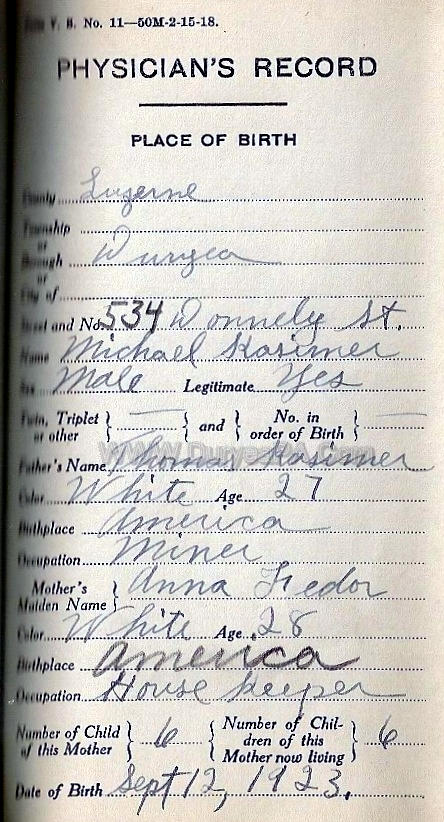 V. S. No. 11—50M-2-15-18.
PHYSICIAN'S RECORD
PLACE OF BIRTH
County Luzerne
Township
or
Borough Duryea
or
City of
Street and No. 534 Donnely St.
Name Michael Kasimer
Sex Male Legitimate Yes
Twin, Triplet or other } — { and } No. in order of Birth } —
Father's Name Thomas Kasimer
Color White Age 27
Birthplace America
Occupation Miner
Mother's Maiden Name } Anna Fedor
Color White Age 28
Birthplace America
Occupation House keeper
Number of Child of this Mother } 6 { Number of Children of this Mother now living } 6
Date of Birth Sept 12, 1923.